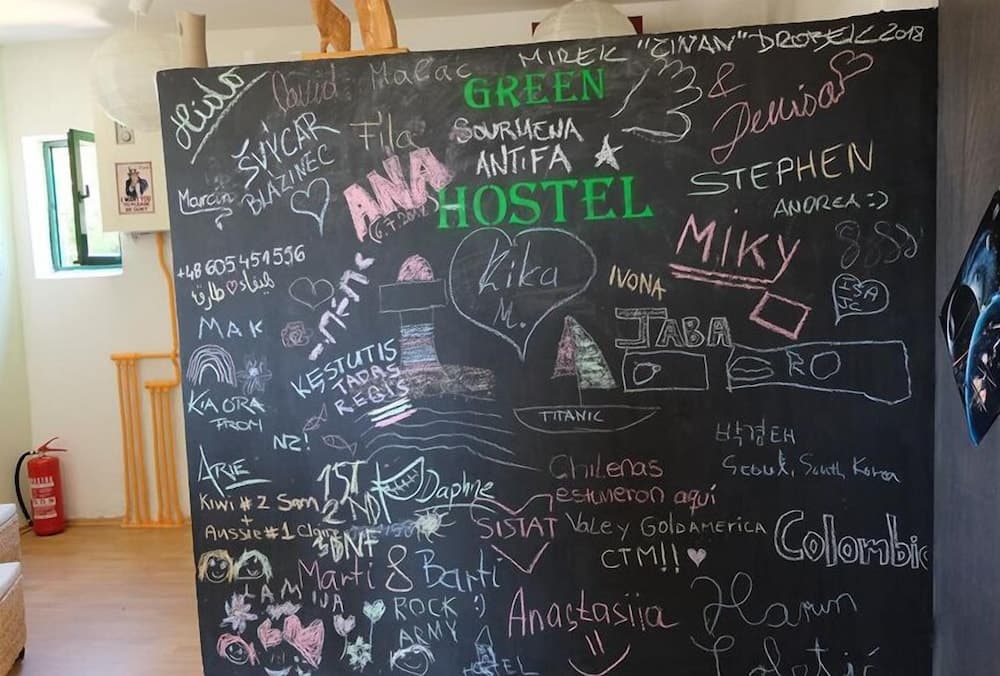 MIREK "ČIŇAN" DROBEK 2018
Hido
David
Malac
GREEN
&
Denisa
ŠVÝCAR
BLAZINEC
Fila
SOURMENA
ANTIFA
ANA
HOSTEL
STEPHEN
ANDREA :)
Marcin
MIKY
+48 605 451 556
هيفاء ♡ طارق
Kika
M.
IVONA
ISA
JABA
MAK
KĘSTUTIS
TADAS
REGIS
TITANIC
KIA ORA
FROM
NZ!
박경태
Seoul, South Korea
ARIE
1ST
2ND
Daphne
Chilenas
estuvieron aquí
Kiwi #2 Sam
+
Aussie #1 Claire
SISTAT
Vale y GOLDAMERICA
CTM!! ♥
Colombia
Marti & Barti
LAMIJA
ROCK :)
ARMY
Anastasija
Harun
HOSTEL
I WANT YOU